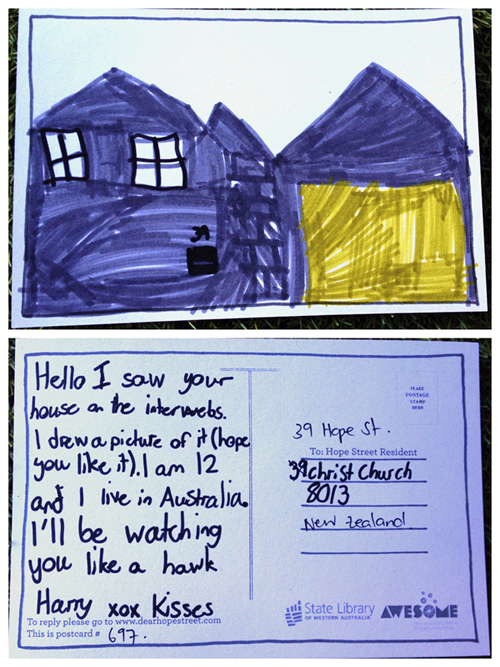 39
Hello I saw your
house on the interwebs.
I drew a picture of it (hope
you like it). I am 12
and I live in Australia.
I'll be watching
you like a hawk
Harry xox Kisses
To reply please go to www.dearhopestreet.com
This is postcard # 697.
PLACE
POSTAGE
STAMP
HERE
39 Hope St.
To: Hope Street Resident
39 Christ Church
8013
New Zealand
State Library
OF WESTERN AUSTRALIA
AWESOME